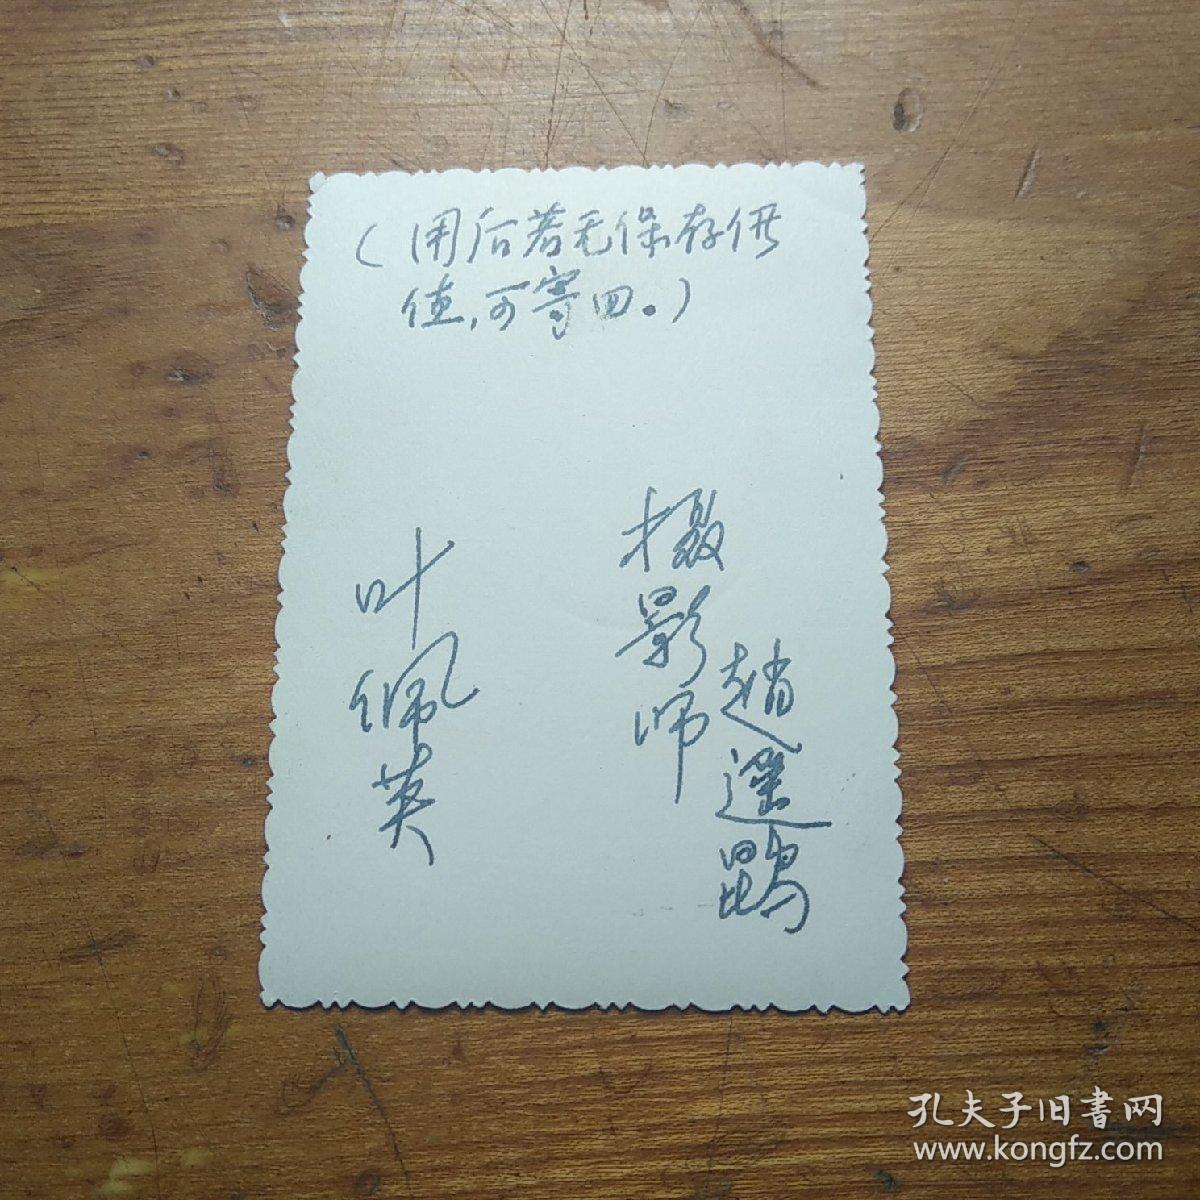 （用后若无保存价
值,可寄回。）
摄影师
趙遥鵾
叶佩英
孔夫子旧書网
www.kongfz.com